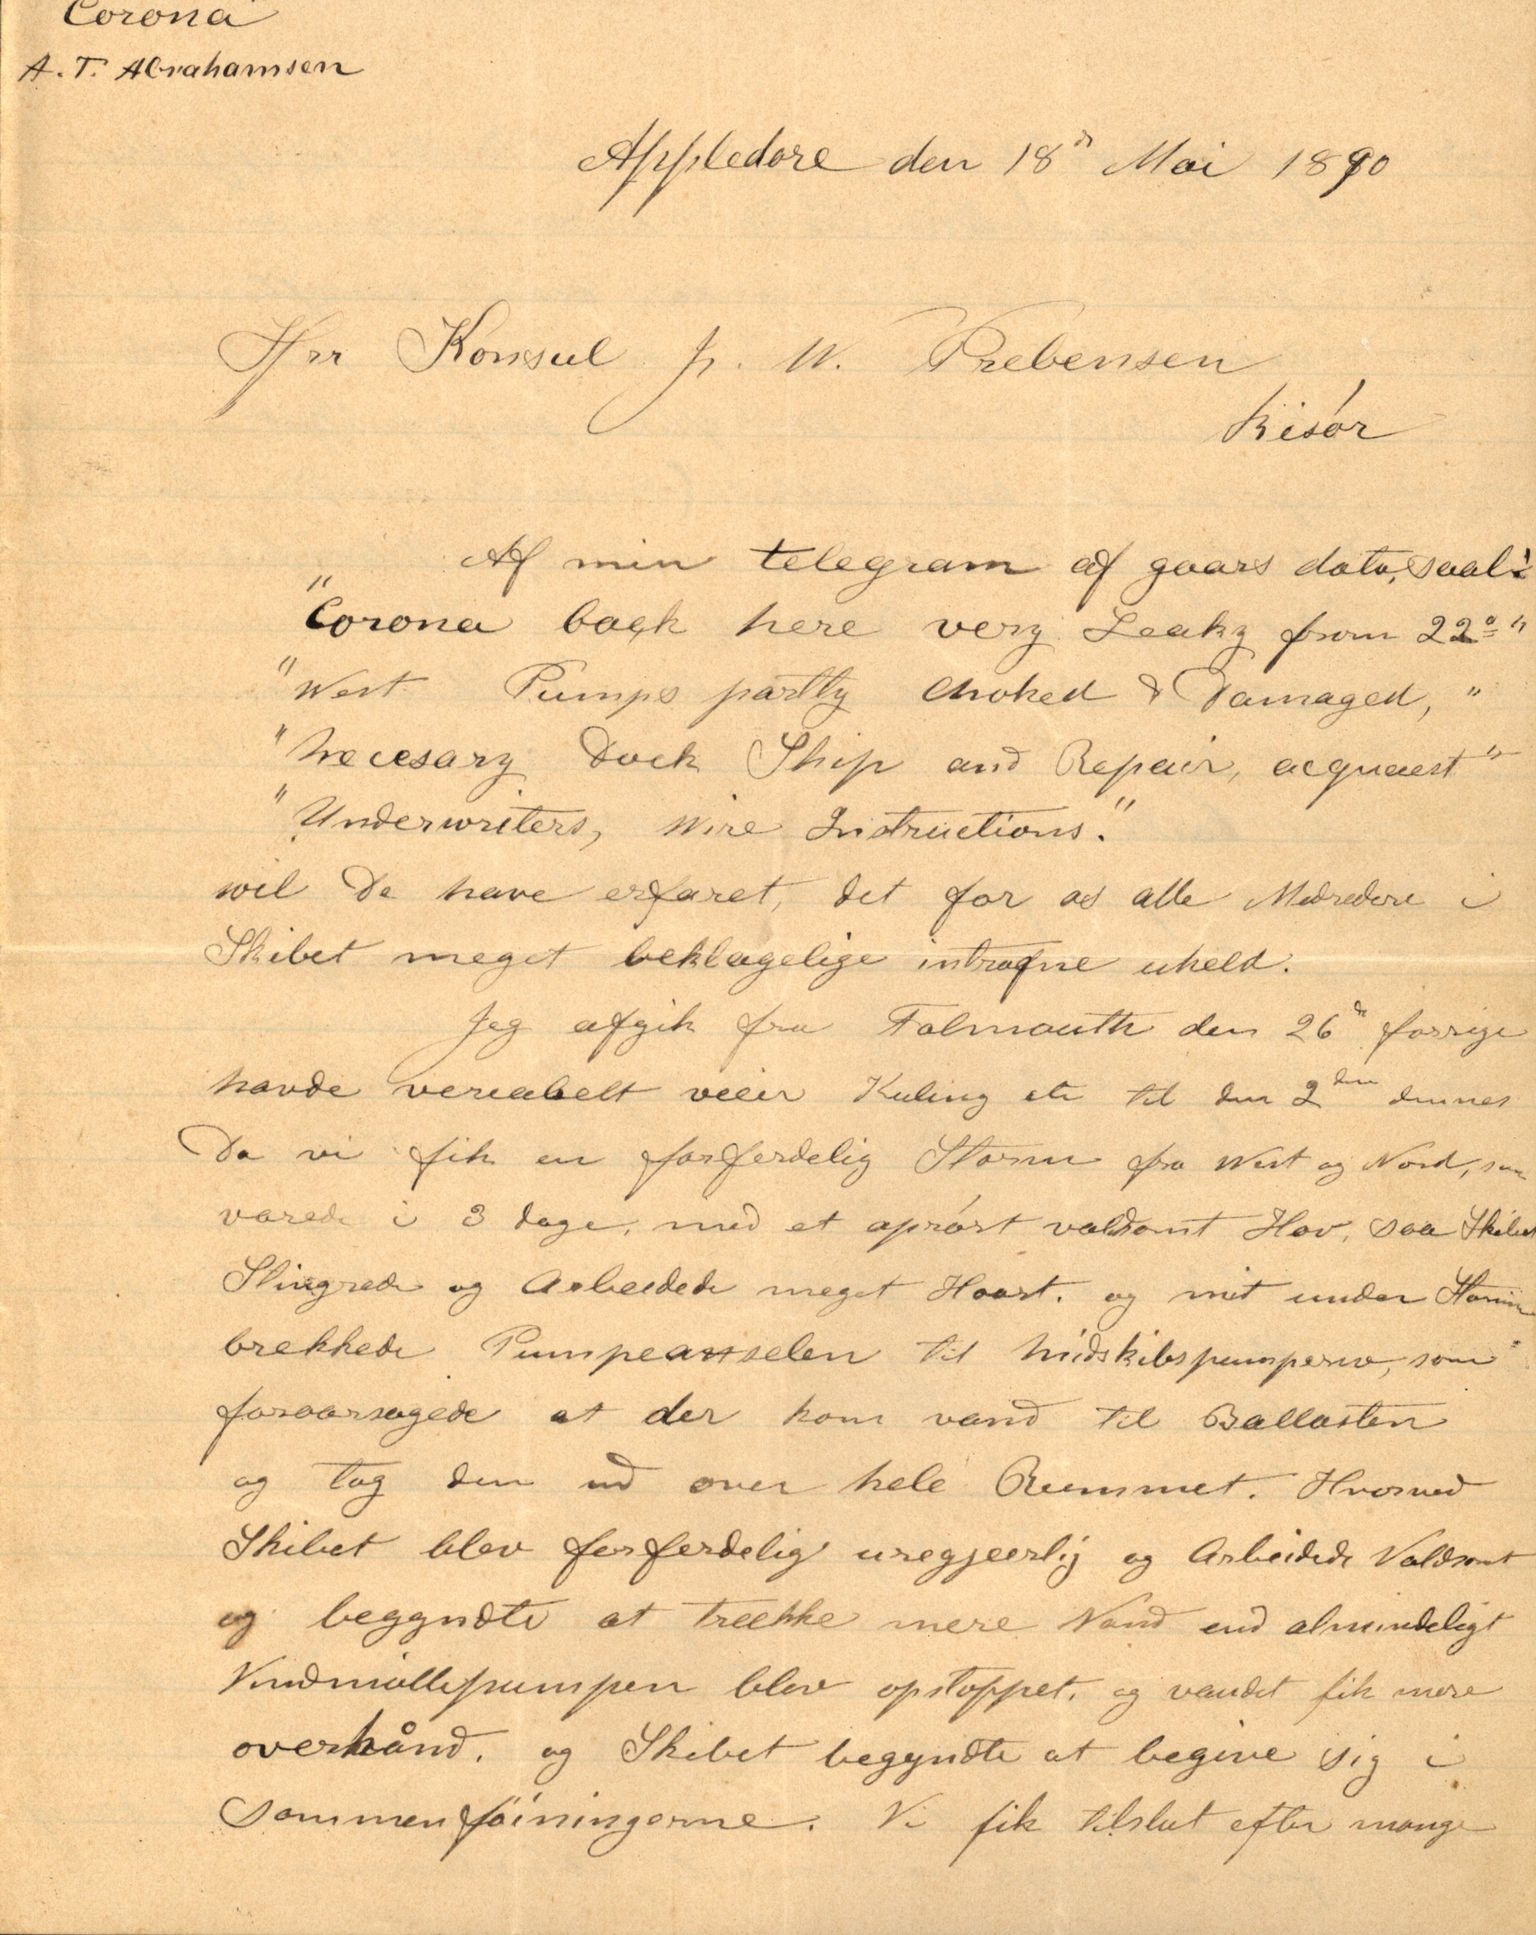 Corona
A. T. Abrahamsen
Appledore den 18d Mai 1890
Hrr Konsul J. W. Prebensen
Risór
Af min telegram af gaars dato, saal:
"Corona back here very Leaky from 22° "
"West Pumps partly choked & Damaged, "
"Necesary Dock Ship and Repair, acquaest "
"Underwriters, Wire Instructions."
vil De have erfaret, det for os alle Medredere i
Skibet meget beklagelige intrafne uheld.
Jeg afgik fra Falmouth den 26d forrige
havde vereabelt veier Kuling etc til den 2den dennes
Da vi fik en forferdelig Storm fra West og Nord, som
varede i 3 dage, med et oprórt voldsomt Hav, saa Skibet
Slingrede og Arbeidede meget Haart. og mit under Stormen
brekkede Pumpeasselen til Midskibspumperne, som
foraarsagede at der kom vand til Ballasten
og tog den ud over hele Rummet. Hvorved
Skibet blev forferdelig uregjeerlig og Arbeidede Voldsomt
og begyndte at trække mere Vand end almindeligt
Vindmöllepumpen blev opstoppet. og vandet fik mere
overhånd. og Skibet begyndte at begive sig i
Sammenföiningerne. Vi fik tilslut efter mange